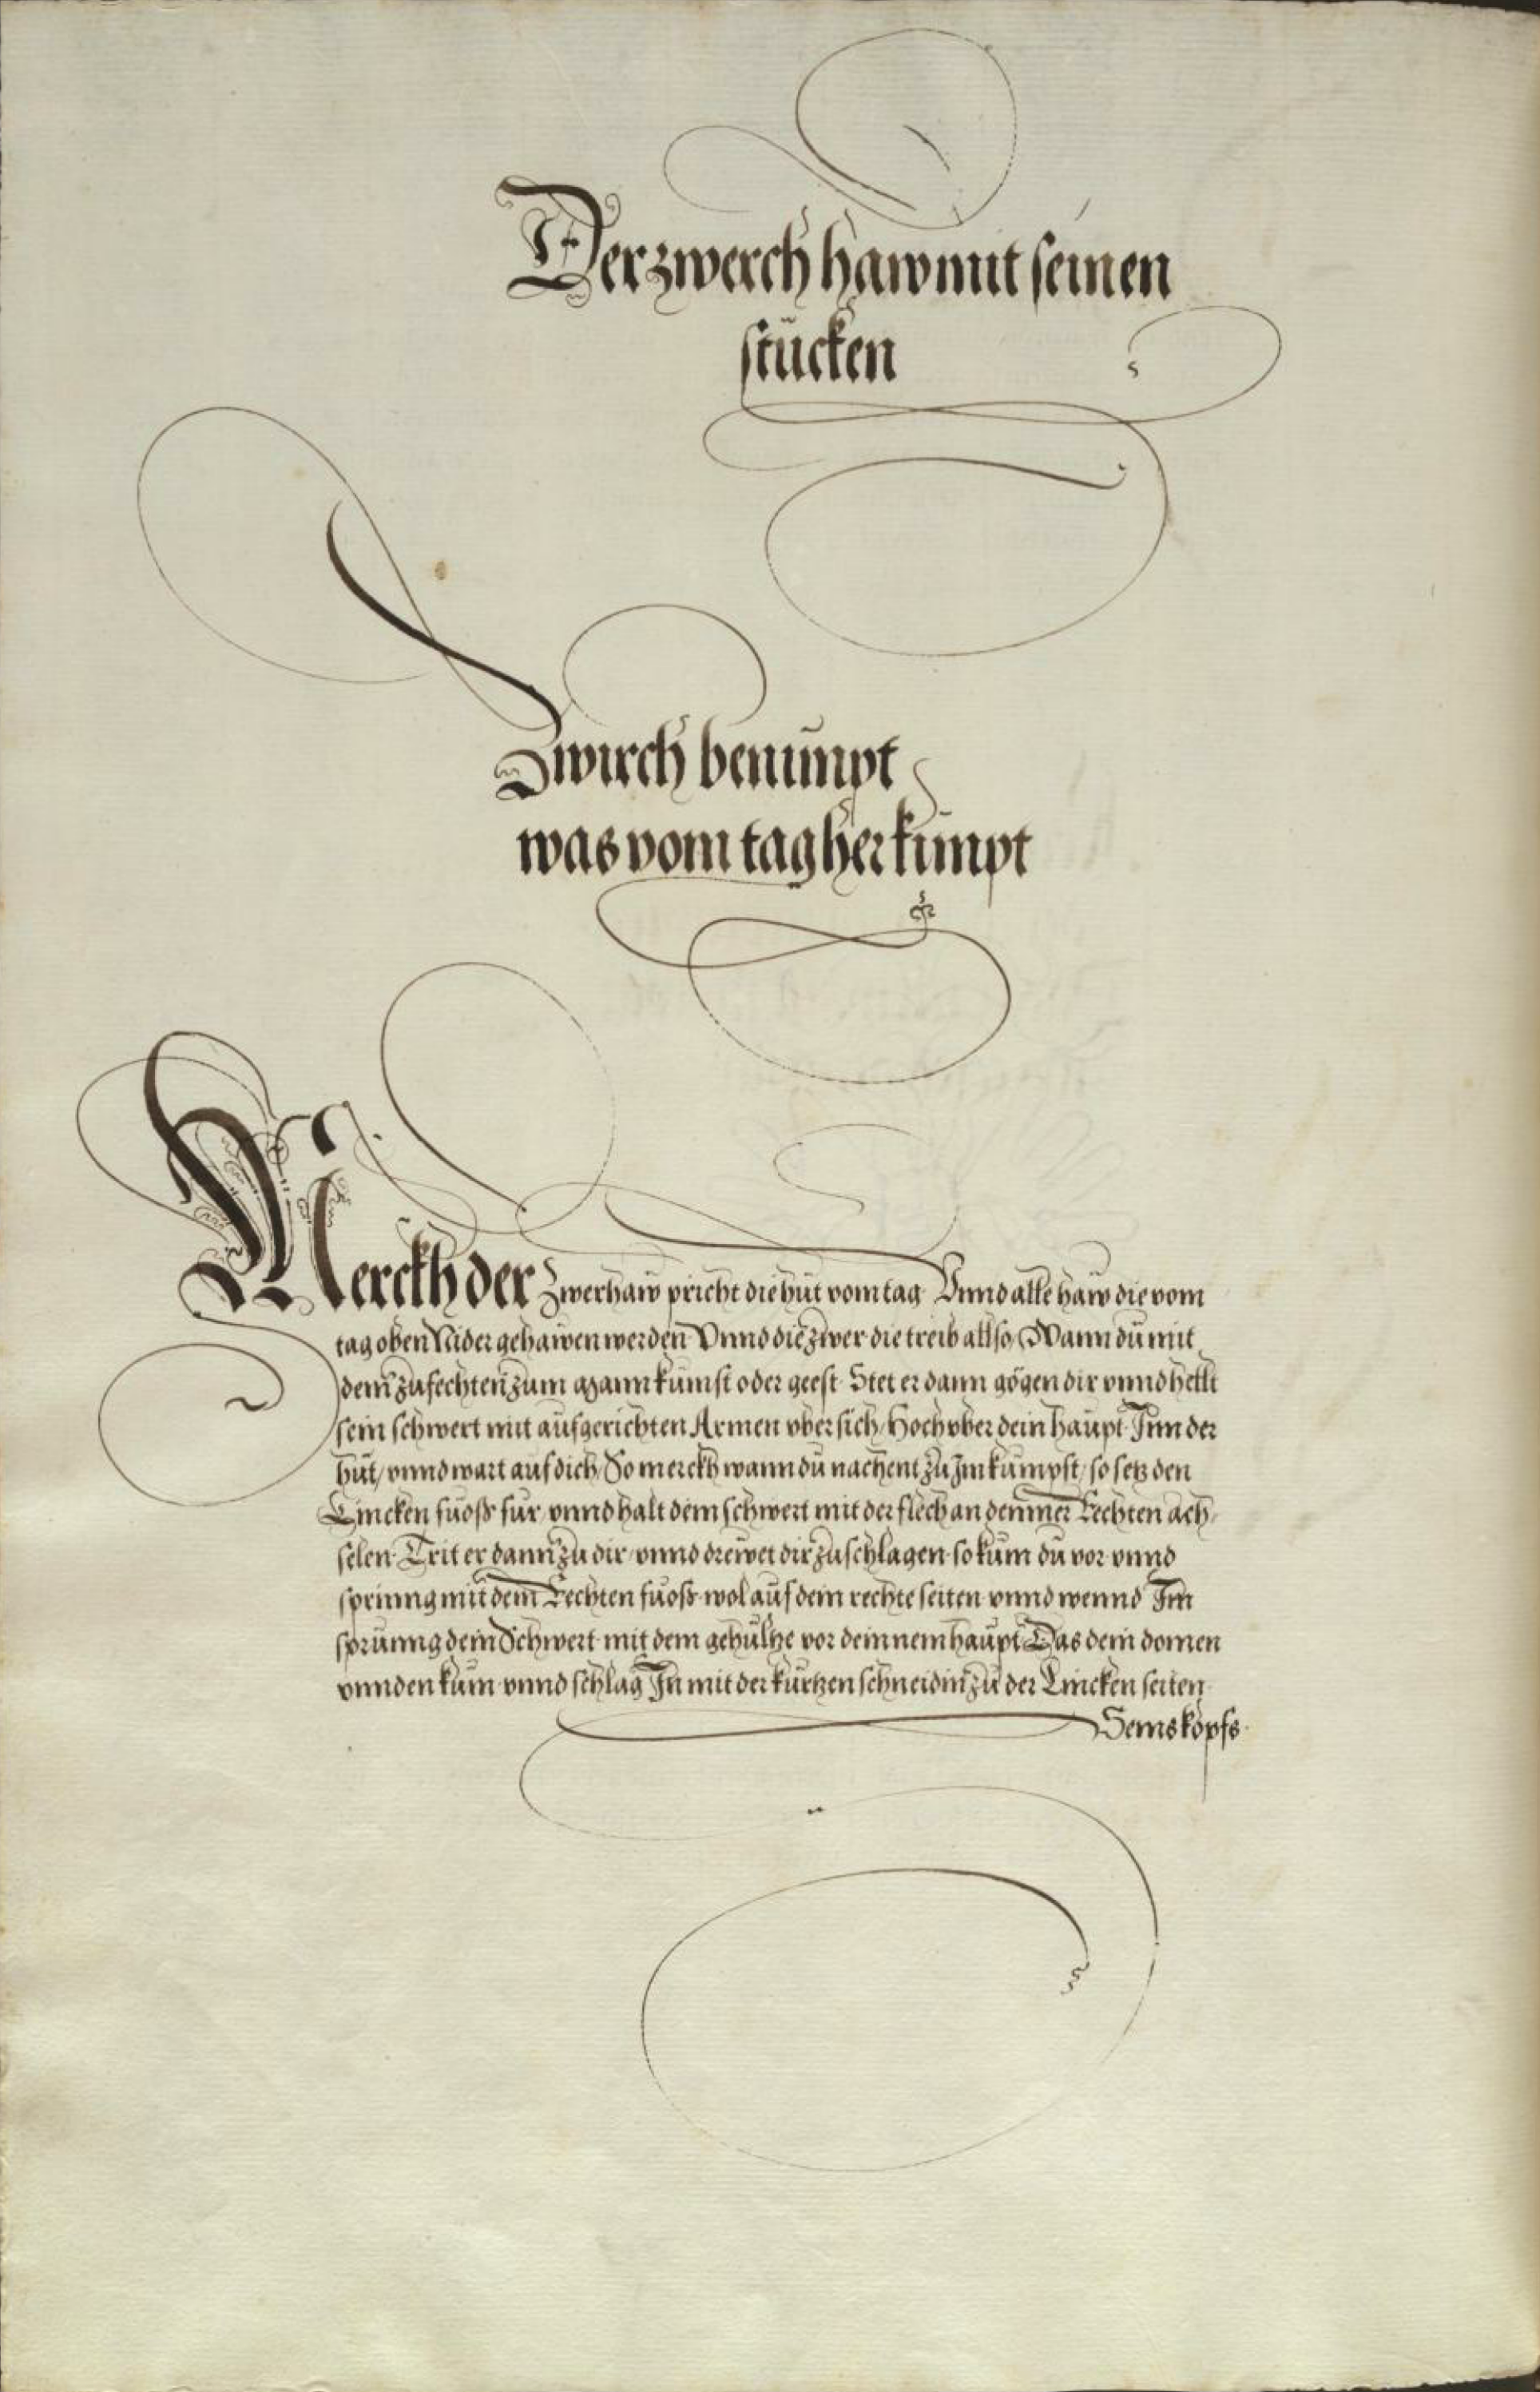 Der zwerch haw mit seinen
stucken
Zwirch benimpt
was vom tag her kimpt
Merckh der Zwerhaw pricht die hut vom tag Vnnd alle haw die vom
tag oben Nider gehawen werden Vnnd die zwer die treib allso Wann du mit
dem zufechten zum mann kumst oder geest Stet er dann gögen dir vnnd hellt
sein schwert mit aufgerichten Armen vber sich Hoch vber dein haupt Inn der
hut/ vnnd wart auf dich/ So merckh wann du nachent zu Im kumpst/ so setz den
Lincken fuoss fur/ vnnd halt dein schwert mit der flech an deinner Rechten ach/
selen Trit er dann zu dir/ vnnd drewet dir zuschlagen so kum du vor vnnd
sprinng mit dem Rechten fuoss wol auf dein rechte seiten vnnd wennd Im
sprunng dein Schwert mit dem gehultze vor deinnem haupt Das dein domen
vnnden kum vnnd schlag In mit der kurtzen schneidin zu der Lincken seiten
Seins kopfs